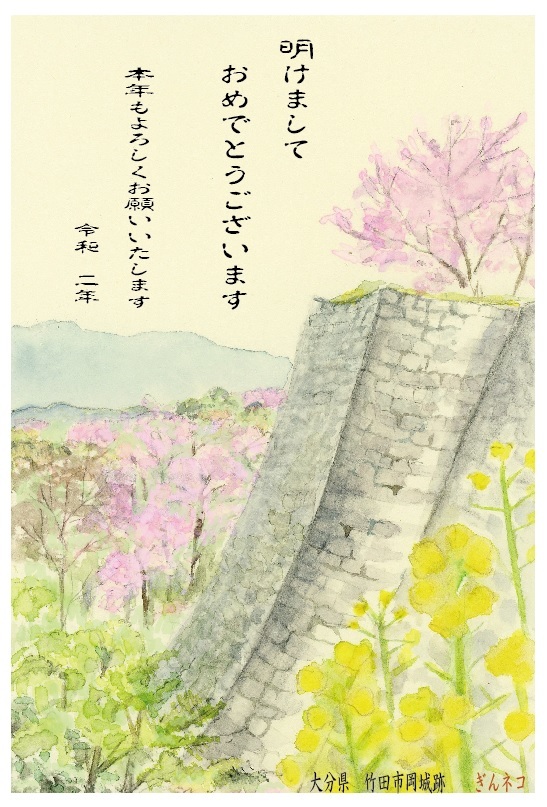 明けまして
おめでとうございます
本年もよろしくお願いいたします
令和　二年
大分県　竹田市岡城跡　ぎんネコ